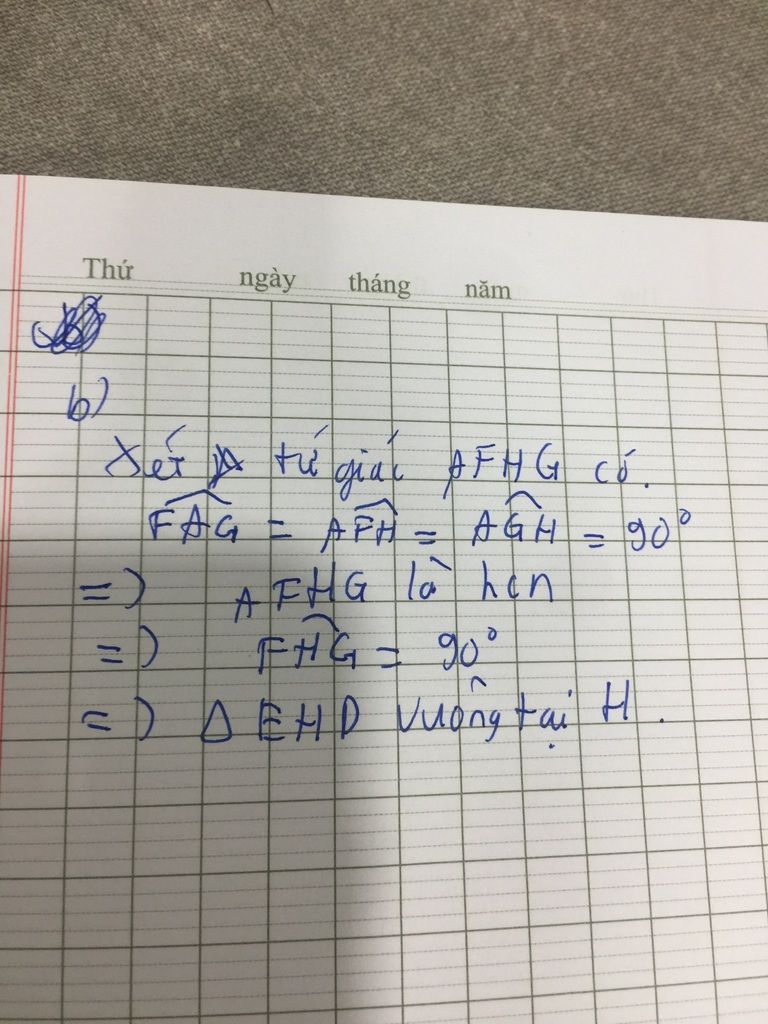 Thứ ngày tháng năm
b)
Xét tứ giác AFHG có.
FAG = AFH = AGH = 90°
=) AFHG là hcn
=) FHG = 90°
=) Δ EHD vuông tại H.